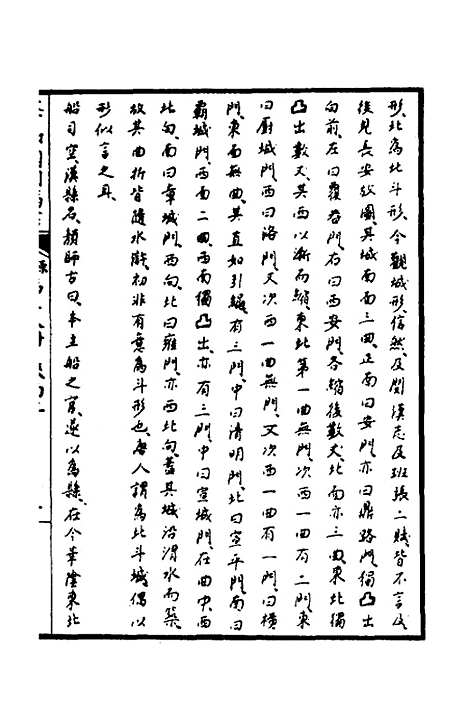 形、北爲北斗形、今觀城形、信然、及閱漢志及班張二賦、皆不言及
後見長安故圖、其城南面三曲、正南曰安門、亦曰鼎路門、獨凸出
向前、左曰覆盎門、右曰西安門、各縮後數丈、北面亦三曲、東北獨
凸出數丈、其西以漸而縮、東北第一曲無門、次西一曲有二門、東
曰廚城門、西曰洛門、又次西一曲無門、又次西一曲有一門、曰橫
門、東面無曲、其直如引繩、有三門、中曰清明門、北曰宣平門、南曰
霸城門、西面二曲、西南獨凸出、亦有三門、中曰直城門、在曲中、西
北向、南曰章城門、西向、北曰雍門、亦西北向、蓋其城沿渭水而築、
故其曲折皆隨水勢、初非有意爲斗形也、唐人謂爲北斗城、偶以
形似言之耳、
船司空、漢縣名、顏師古曰、本主船之官、遂以爲縣、在今華陰東北